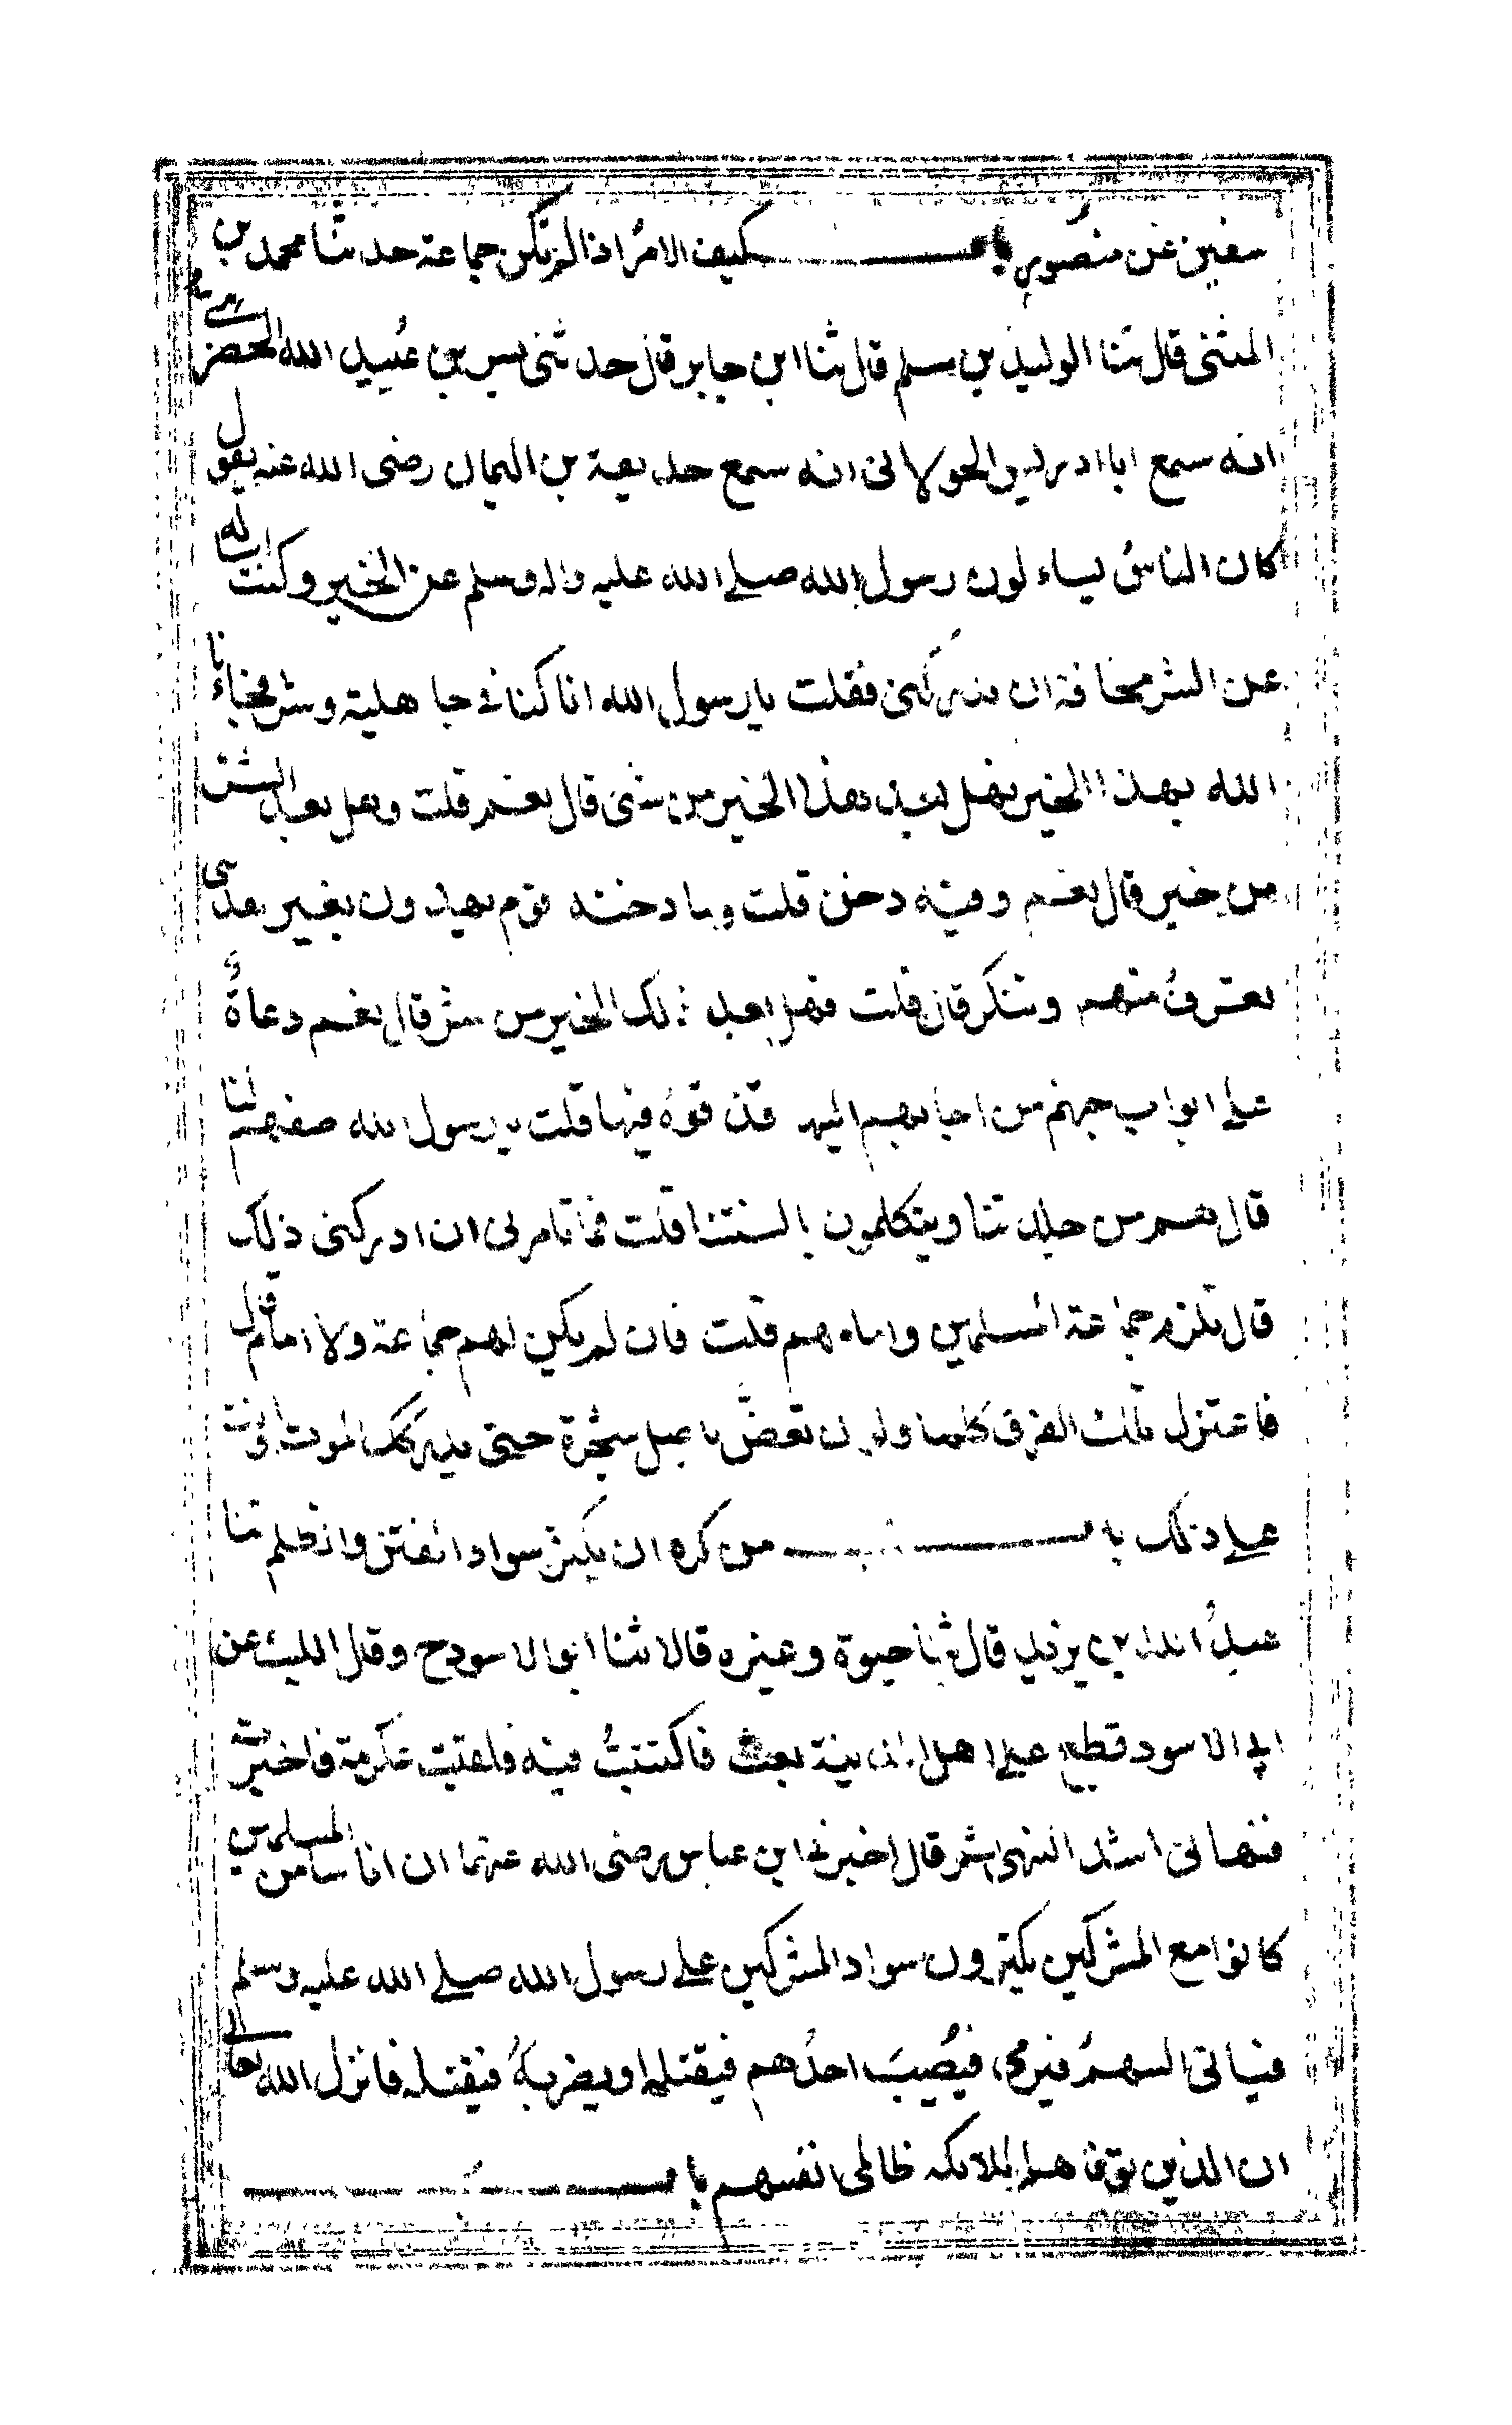 سفين عن منصور باب كيف الامر اذا لم تكن جماعة حدثنا محمد بن
المثنى قال ثنا الوليد بن مسلم قال ثنا ابن جابر قال حدثنى بسر بن عبيد الله الحضرمى
انه سمع ابا ادريس الخولانى انه سمع حذيفة بن اليمان رضى الله عنه يقول
كان الناسُ يساءلون رسول الله صلے الله عليه واله وسلم عن الخير وكنت اساله
عن الشر مخافة ان يدركنى فقلت يا رسول الله انا كنا فے جاهلية وشر فجاءنا
الله بهذا الخير فهل بعد هذا الخير من شى قال نعم قلت وهل بعد الشر
من خير قال نعم وفيه دخن قلت وما دخنه قوم يهدون بغير هدى
تعرفُ منهم وتنكر قال قلت فهل بعد ذلك الخير من شر قال نعم دعاةٌ
على ابواب جهنم من اجابهم اليها قذفوهُ فيها قلت يا رسول الله صفهم لنا
قال هم من جلدتنا ويتكلمون بالسنتنا قلت فما تامرنى ان ادركنى ذلك
قال تلزم جماعة المسلمين وامامهم قلت فان لم يكن لهم جماعة ولا امام قال
فاعتزل تلك الفرق كلها ولو ان تعضَّ باصل شجرة حتى يدركك الموت وانت
على ذلك باب من كره ان يكثر سواد الفتن والظلم ثنا
عبدُ الله بن يزيد قال ثنا حيوة وغيره قالا ثنا ابو الاسود ح وقال الليث عن
ابى الاسود قطع على اهل المدينة بعث فاكتتبتُ فيه فلقيت عكرمة فاخبرته
فنهانى اشد النهى ثم قال اخبرنى ابن عباس رضى الله عنهما ان اناسا من المسلمين
كانوا مع المشركين يكثرون سواد المشركين على رسول الله صلے الله عليه وسلم
فياتى السهمُ فيرمى فيُصيبَ احدُهم فيقتله او يضربهُ فيقتله فانزل الله تعالى
ان الذين توفاهم الملائكه ظالمى انفسهم باب